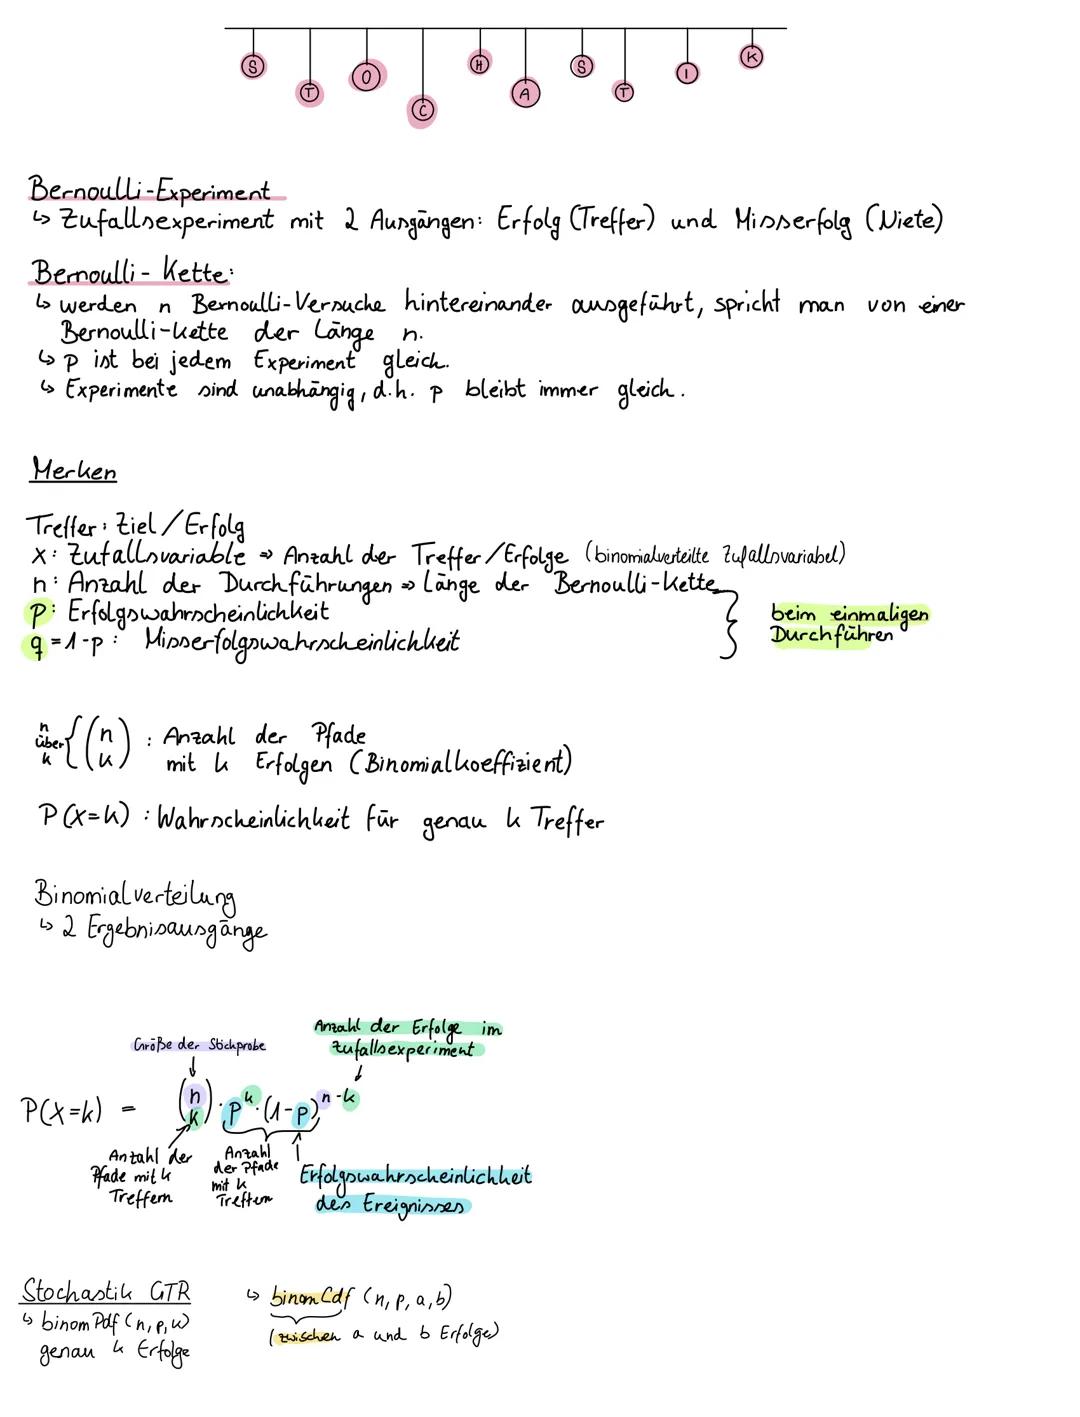 STOCHASTIK
Bernoulli-Experiment
↳ Zufallsexperiment mit 2 Ausgängen: Erfolg (Treffer) und Misserfolg (Niete)
Bernoulli-Kette:
↳ werden n Bernoulli-Versuche hintereinander ausgeführt, spricht man von einer
Bernoulli-Kette der Länge n.
↳ p ist bei jedem Experiment gleich.
↳ Experimente sind unabhängig, d.h. p bleibt immer gleich.
Merken
Treffer: Ziel/Erfolg
X: Zufallsvariable ⇒ Anzahl der Treffer/Erfolge (binomialverteilte Zufallsvariabel)
n: Anzahl der Durchführungen ⇒ Länge der Bernoulli-Kette
p: Erfolgswahrscheinlichkeit
q = 1-p: Misserfolgswahrscheinlichkeit
beim einmaligen
Durchführen
n
über
k
{(n k) : Anzahl der Pfade
mit k Erfolgen (Binomialkoeffizient)
P(X=k) : Wahrscheinlichkeit für genau k Treffer
Binomialverteilung
↳ 2 Ergebnisausgänge
Anzahl der Erfolge im
Zufallsexperiment
Größe der Stichprobe
P(X=k) = (n k) · p^k · (1-p)^n-k
Anzahl der
Pfade mit k
Treffern
Anzahl
der Pfade
mit k
Treffern
Erfolgswahrscheinlichkeit
des Ereignisses
Stochastik GTR
↳ binomPdf (n, p, k)
genau k Erfolge
↳ binomCdf (n, p, a, b)
(zwischen a und b Erfolge)